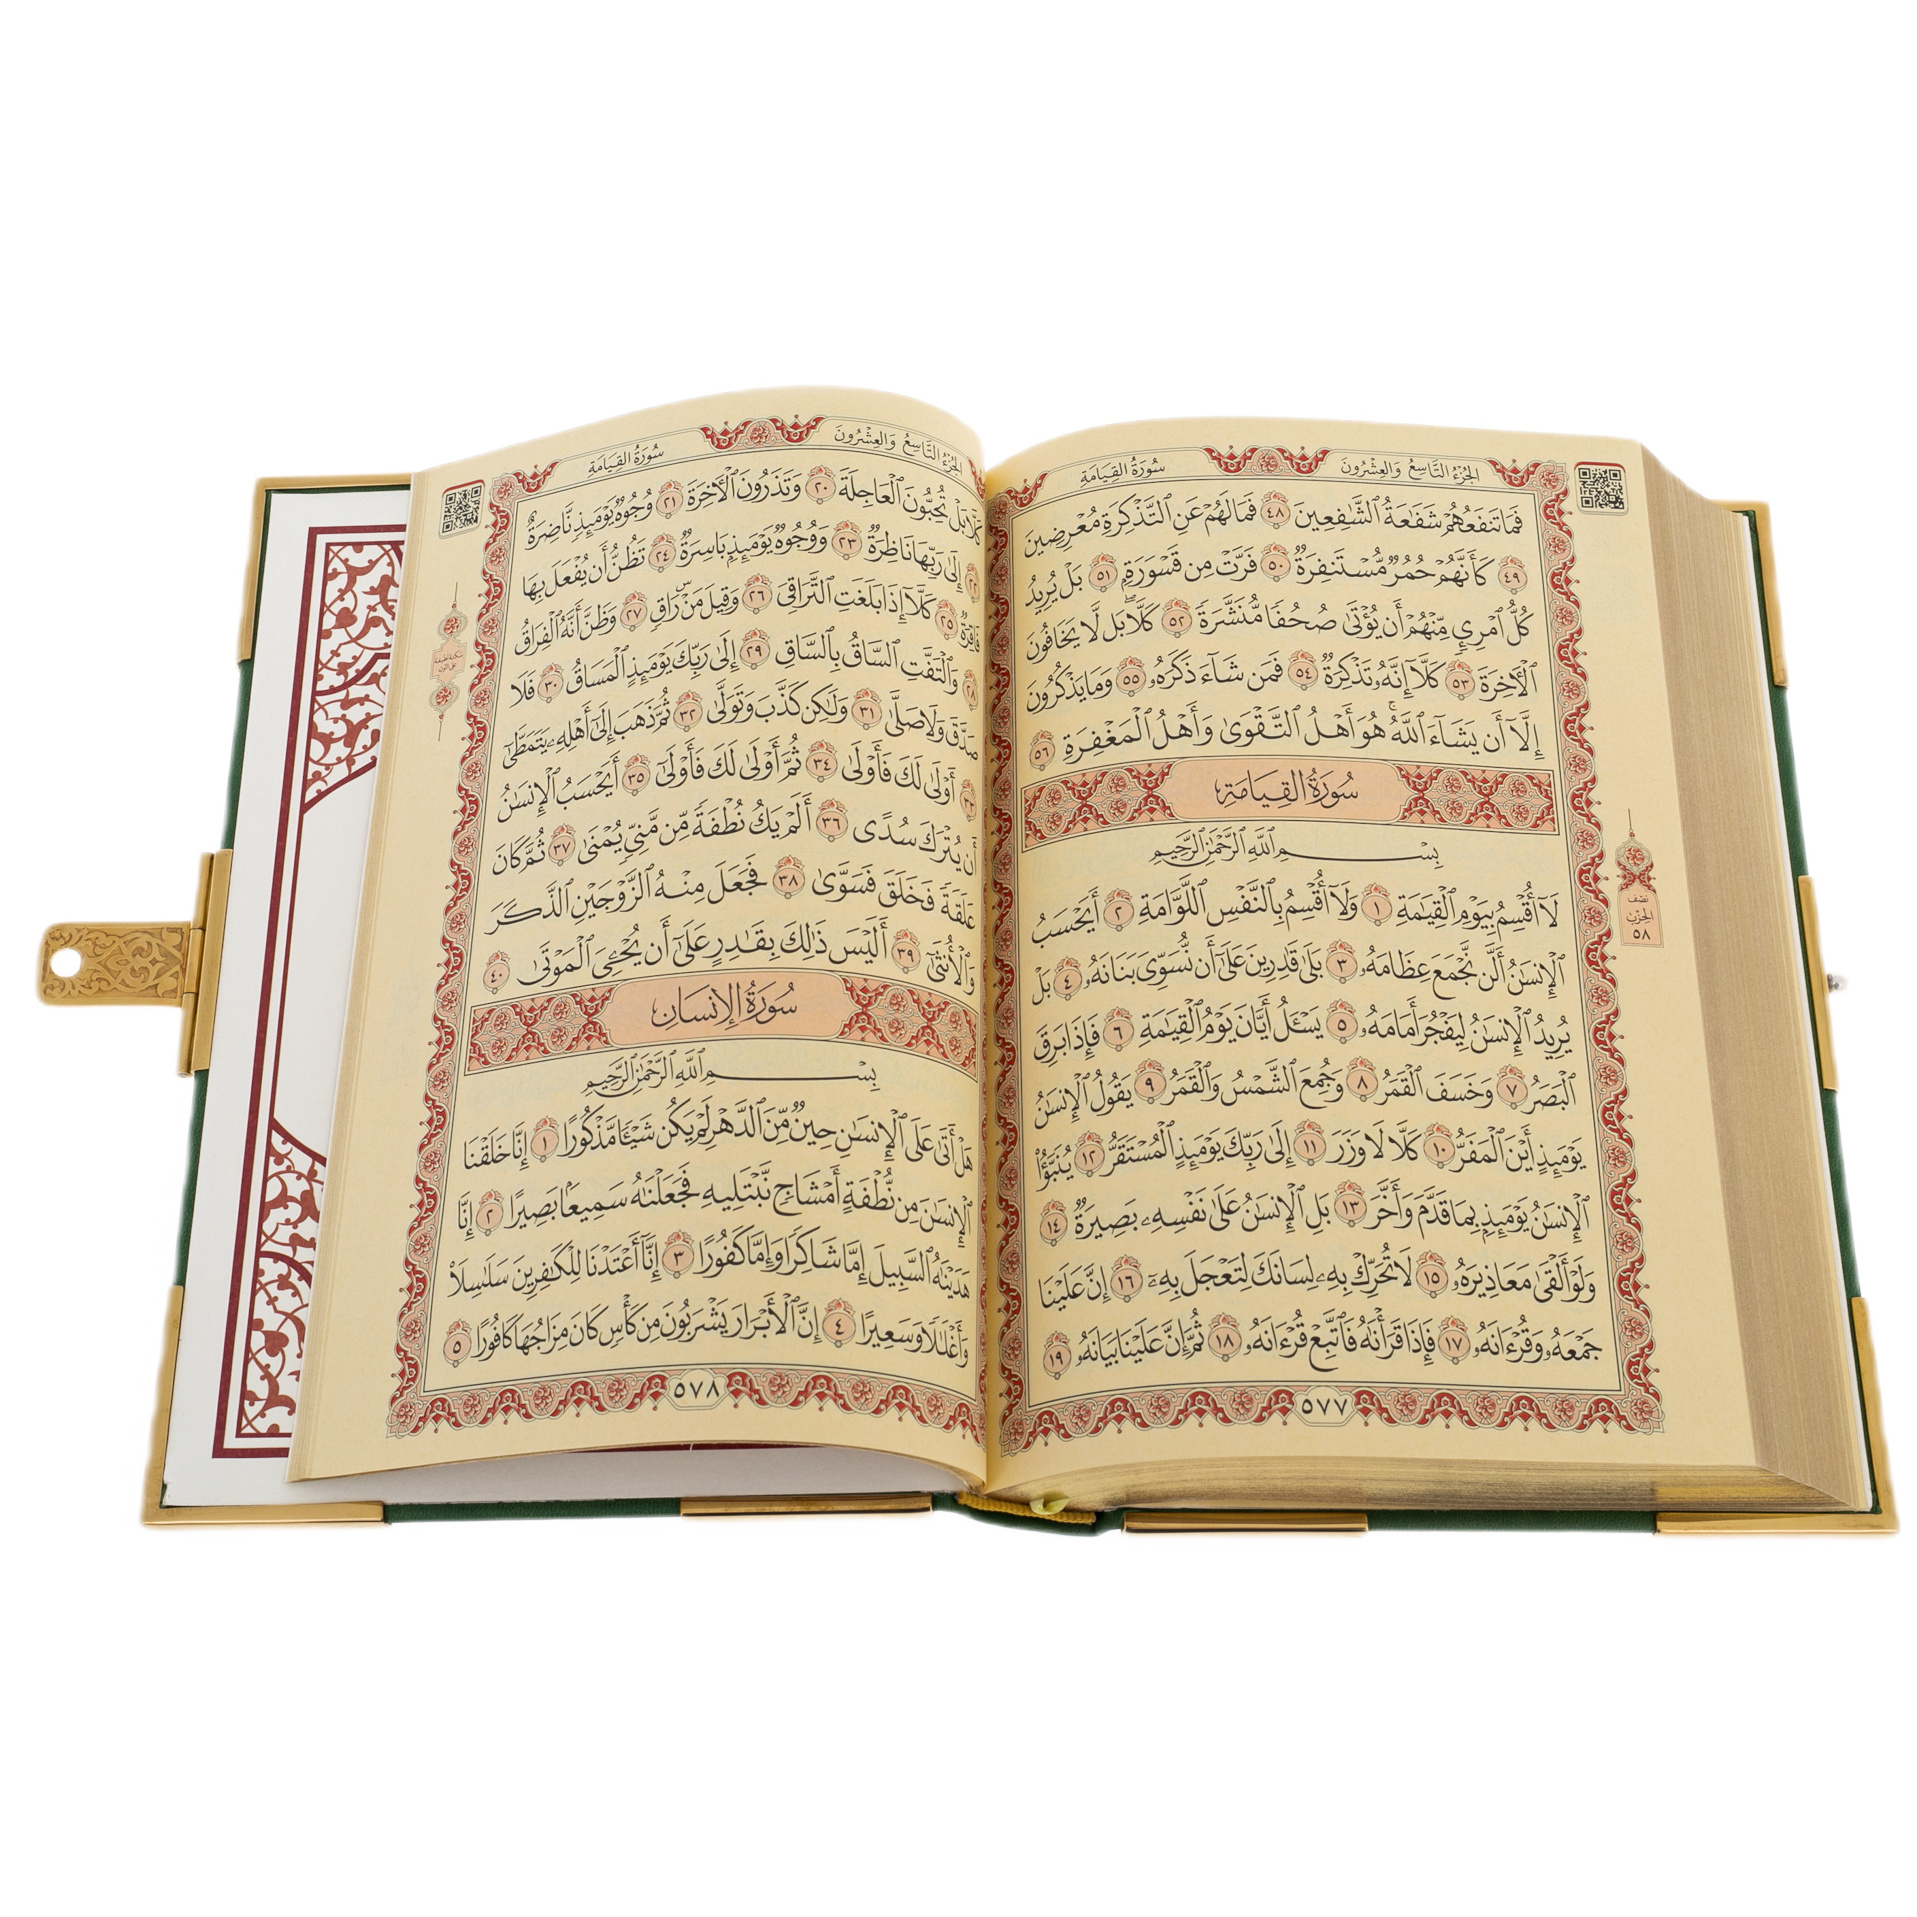 الجُزْءُ التَّاسِعُ وَالعِشْرُونَ
سُورَةُ القِيَامَةِ
فَمَا تَنفَعُهُمْ شَفَٰعَةُ ٱلشَّٰفِعِينَ ٤٨ فَمَا لَهُمْ عَنِ ٱلتَّذْكِرَةِ مُعْرِضِينَ
٤٩ كَأَنَّهُمْ حُمُرٌ مُّسْتَنفِرَةٌ ٥٠ فَرَّتْ مِن قَسْوَرَةِۭ ٥١ بَلْ يُرِيدُ
كُلُّ ٱمْرِئٍ مِّنْهُمْ أَن يُؤْتَىٰ صُحُفًا مُّنَشَّرَةً ٥٢ كَلَّاۖ بَل لَّا يَخَافُونَ
ٱلْأٓخِرَةَ ٥٣ كَلَّآ إِنَّهُۥ تَذْكِرَةٌ ٥٤ فَمَن شَآءَ ذَكَرَهُۥ ٥٥ وَمَا يَذْكُرُونَ
إِلَّآ أَن يَشَآءَ ٱللَّهُۚ هُوَ أَهْلُ ٱلتَّقْوَىٰ وَأَهْلُ ٱلْمَغْفِرَةِ ٥٦
سُورَةُ القِيَامَةِ
بِسْمِ ٱللَّهِ ٱلرَّحْمَٰنِ ٱلرَّحِيمِ
لَآ أُقْسِمُ بِيَوْمِ ٱلْقِيَٰمَةِ ١ وَلَآ أُقْسِمُ بِٱلنَّفْسِ ٱللَّوَّامَةِ ٢ أَيَحْسَبُ
ٱلْإِنسَٰنُ أَلَّن نَّجْمَعَ عِظَامَهُۥ ٣ بَلَىٰ قَٰدِرِينَ عَلَىٰٓ أَن نُّسَوِّىَ بَنَانَهُۥ ٤ بَلْ
يُرِيدُ ٱلْإِنسَٰنُ لِيَفْجُرَ أَمَامَهُۥ ٥ يَسْـَٔلُ أَيَّانَ يَوْمُ ٱلْقِيَٰمَةِ ٦ فَإِذَا بَرِقَ
ٱلْبَصَرُ ٧ وَخَسَفَ ٱلْقَمَرُ ٨ وَجُمِعَ ٱلشَّمْسُ وَٱلْقَمَرُ ٩ يَقُولُ ٱلْإِنسَٰنُ
يَوْمَئِذٍ أَيْنَ ٱلْمَفَرُّ ١٠ كَلَّا لَا وَزَرَ ١١ إِلَىٰ رَبِّكَ يَوْمَئِذٍ ٱلْمُسْتَقَرُّ ١٢ يُنَبَّؤُا۟
ٱلْإِنسَٰنُ يَوْمَئِذٍۭ بِمَا قَدَّمَ وَأَخَّرَ ١٣ بَلِ ٱلْإِنسَٰنُ عَلَىٰ نَفْسِهِۦ بَصِيرَةٌ ١٤
وَلَوْ أَلْقَىٰ مَعَاذِيرَهُۥ ١٥ لَا تُحَرِّكْ بِهِۦ لِسَانَكَ لِتَعْجَلَ بِهِۦٓ ١٦ إِنَّ عَلَيْنَا
جَمْعَهُۥ وَقُرْءَانَهُۥ ١٧ فَإِذَا قَرَأْنَٰهُ فَٱتَّبِعْ قُرْءَانَهُۥ ١٨ ثُمَّ إِنَّ عَلَيْنَا بَيَانَهُۥ ١٩
٥٧٧
نصف
الحزب
٥٨
الجُزْءُ التَّاسِعُ وَالعِشْرُونَ
سُورَةُ القِيَامَةِ
كَلَّا بَلْ تُحِبُّونَ ٱلْعَاجِلَةَ ٢٠ وَتَذَرُونَ ٱلْأٓخِرَةَ ٢١ وُجُوهٌ يَوْمَئِذٍ نَّاضِرَةٌ
٢٢ إِلَىٰ رَبِّهَا نَاظِرَةٌ ٢٣ وَوُجُوهٌ يَوْمَئِذٍۭ بَاسِرَةٌ ٢٤ تَظُنُّ أَن يُفْعَلَ بِهَا
فَاقِرَةٌ ٢٥ كَلَّآ إِذَا بَلَغَتِ ٱلتَّرَاقِىَ ٢٦ وَقِيلَ مَنْۜ رَاقٍ ٢٧ وَظَنَّ أَنَّهُ ٱلْفِرَاقُ
٢٨ وَٱلْتَفَّتِ ٱلسَّاقُ بِٱلسَّاقِ ٢٩ إِلَىٰ رَبِّكَ يَوْمَئِذٍ ٱلْمَسَاقُ ٣٠ فَلَا
صَدَّقَ وَلَا صَلَّىٰ ٣١ وَلَٰكِن كَذَّبَ وَتَوَلَّىٰ ٣٢ ثُمَّ ذَهَبَ إِلَىٰٓ أَهْلِهِۦ يَتَمَطَّىٰٓ
٣٣ أَوْلَىٰ لَكَ فَأَوْلَىٰ ٣٤ ثُمَّ أَوْلَىٰ لَكَ فَأَوْلَىٰٓ ٣٥ أَيَحْسَبُ ٱلْإِنسَٰنُ
أَن يُتْرَكَ سُدًى ٣٦ أَلَمْ يَكُ نُطْفَةً مِّن مَّنِىٍّ يُمْنَىٰ ٣٧ ثُمَّ كَانَ
عَلَقَةً فَخَلَقَ فَسَوَّىٰ ٣٨ فَجَعَلَ مِنْهُ ٱلزَّوْجَيْنِ ٱلذَّكَرَ
وَٱلْأُنثَىٰٓ ٣٩ أَلَيْسَ ذَٰلِكَ بِقَٰدِرٍ عَلَىٰٓ أَن يُحْـِۧىَ ٱلْمَوْتَىٰ ٤٠
سُورَةُ الإِنسَانِ
بِسْمِ ٱللَّهِ ٱلرَّحْمَٰنِ ٱلرَّحِيمِ
هَلْ أَتَىٰ عَلَى ٱلْإِنسَٰنِ حِينٌ مِّنَ ٱلدَّهْرِ لَمْ يَكُن شَيْـًٔا مَّذْكُورًا ١ إِنَّا خَلَقْنَا
ٱلْإِنسَٰنَ مِن نُّطْفَةٍ أَمْشَاجٍ نَّبْتَلِيهِ فَجَعَلْنَٰهُ سَمِيعًۢا بَصِيرًا ٢ إِنَّا
هَدَيْنَٰهُ ٱلسَّبِيلَ إِمَّا شَاكِرًا وَإِمَّا كَفُورًا ٣ إِنَّآ أَعْتَدْنَا لِلْكَٰفِرِينَ سَلَٰسِلَا۟
وَأَغْلَٰلًا وَسَعِيرًا ٤ إِنَّ ٱلْأَبْرَارَ يَشْرَبُونَ مِن كَأْسٍ كَانَ مِزَاجُهَا كَافُورًا ٥
٥٧٨